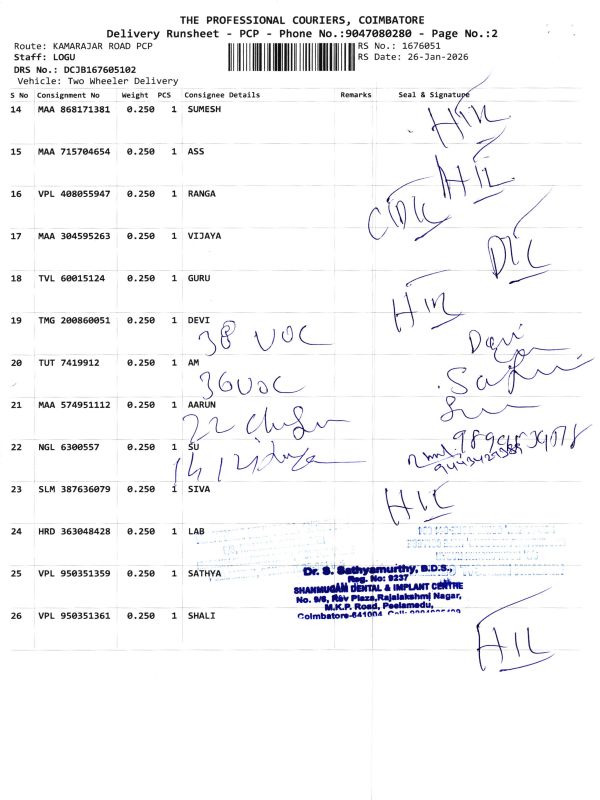 THE PROFESSIONAL COURIERS, COIMBATORE
Delivery Runsheet - PCP - Phone No.:9047080280 - Page No.:2
Route: KAMARAJAR ROAD PCP
RS No.: 1676051
Staff: LOGU
RS Date: 26-Jan-2026
DRS No.: DCJB167605102
Vehicle: Two Wheeler Delivery
S No Consignment No Weight PCS Consignee Details Remarks Seal & Signature
14 MAA 868171381 0.250 1 SUMESH
15 MAA 715704654 0.250 1 ASS
16 VPL 408055947 0.250 1 RANGA
17 MAA 304595263 0.250 1 VIJAYA
18 TVL 60015124 0.250 1 GURU
19 TMG 200860051 0.250 1 DEVI
38 VOC
Devi
20 TUT 7419912 0.250 1 AM
36 VOC
21 MAA 574951112 0.250 1 AARUN
22
22 NGL 6300557 0.250 1 SU
23 SLM 387636079 0.250 1 SIVA
24 HRD 363048428 0.250 1 LAB
25 VPL 950351359 0.250 1 SATHYA
Dr. S. Sathyamurthy, B.D.S.,
Reg. No: 9237
SHANMUGAM DENTAL & IMPLANT CENTRE
No. 9/6, Rev Plaza,Rajalakshmi Nagar,
M.K.P. Road, Peelamedu,
Coimbatore-641004
26 VPL 950351361 0.250 1 SHALI